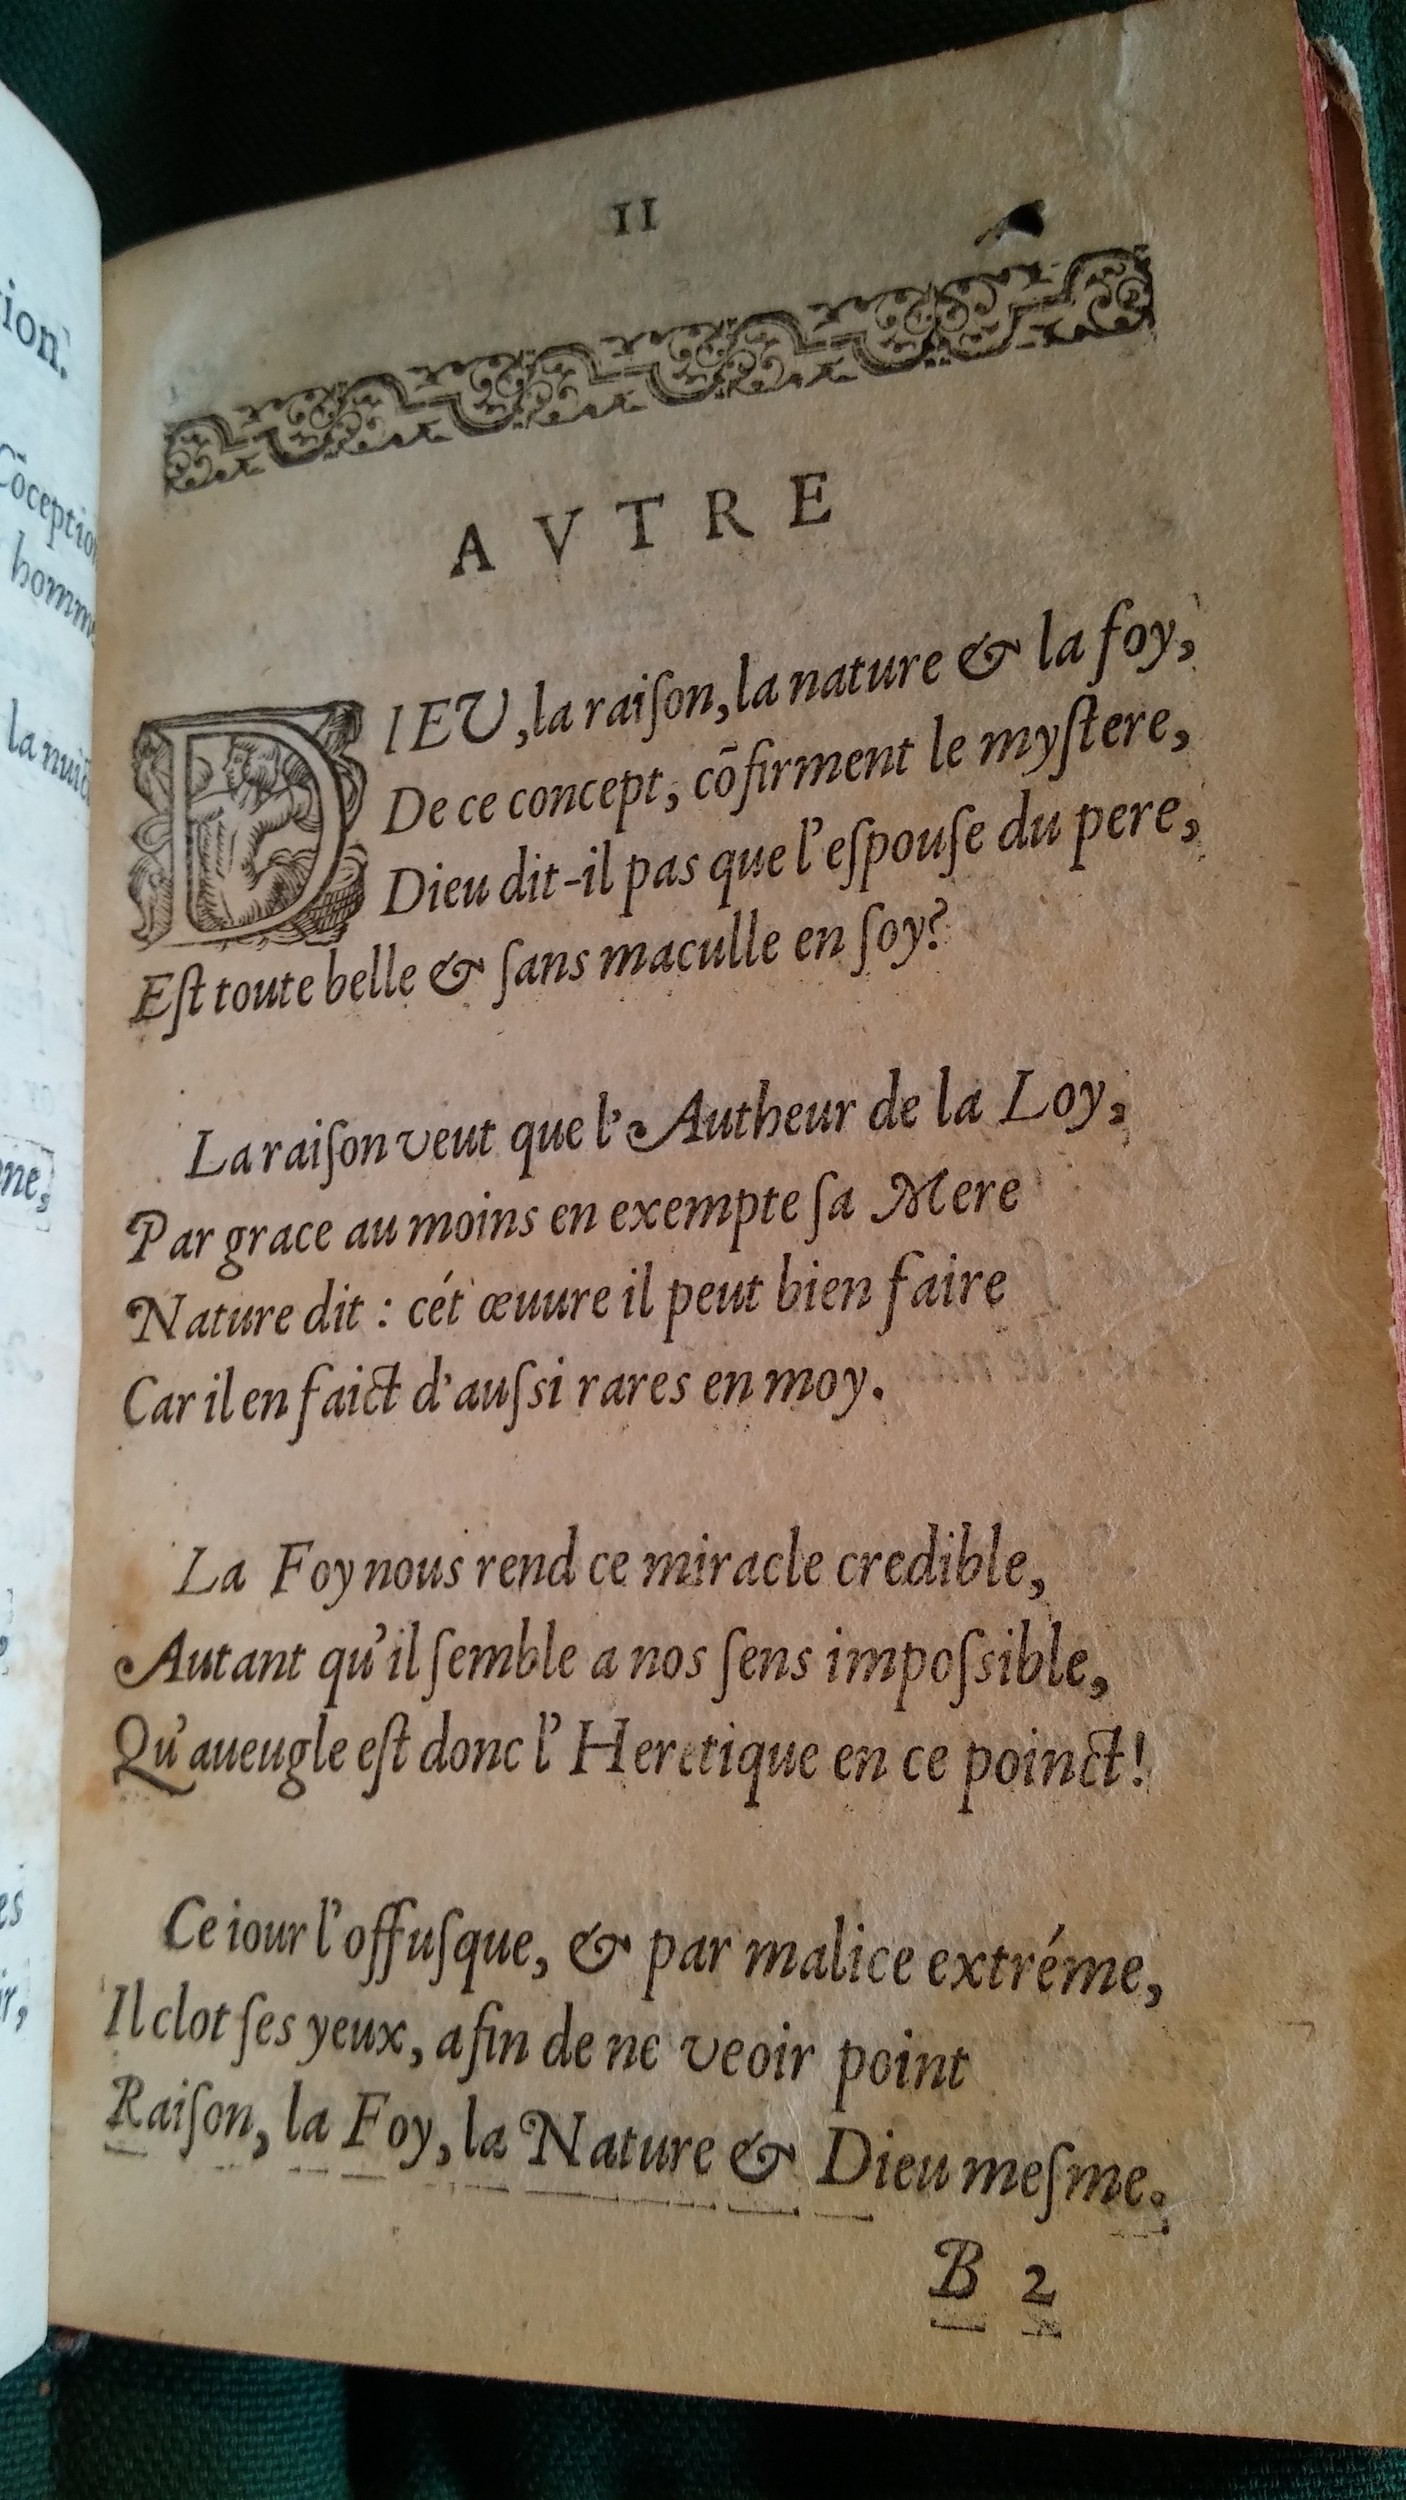 11
AVTRE
DIEU, la raiſon, la nature & la foy,
De ce concept, cõfirment le myſtere,
Dieu dit-il pas que l'eſpouſe du pere,
Eſt toute belle & ſans maculle en ſoy?
La raiſon veut que l'Autheur de la Loy,
Par grace au moins en exempte ſa Mere
Nature dit : cét œuure il peut bien faire
Car il en faict d'auſsi rares en moy.
La Foy nous rend ce miracle credible,
Autant qu'il ſemble a nos ſens impoſsible,
Qu'aueugle eſt donc l'Heretique en ce poinct!
Ce iour l'offuſque, & par malice extréme,
Il clot ſes yeux, afin de ne veoir point
Raiſon, la Foy, la Nature & Dieu meſme.
B 2